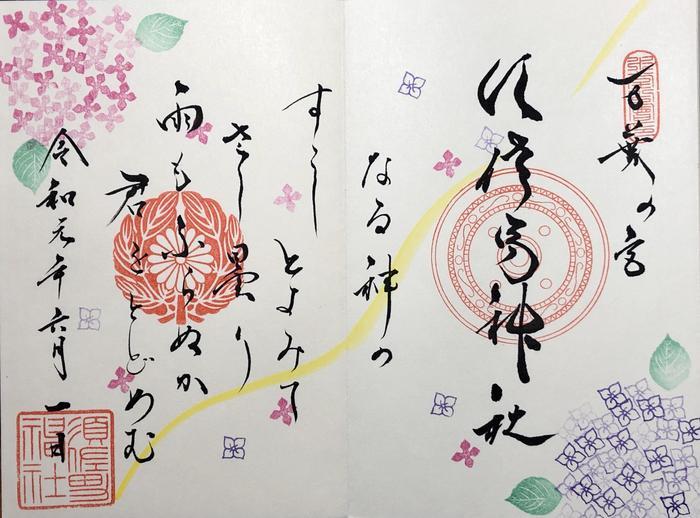 万葉の宮
須佐男神社
なる神の
すこし とよみて
さし曇り
雨もふらぬか
君をとどめむ
令和元年六月一日
須佐男
神社